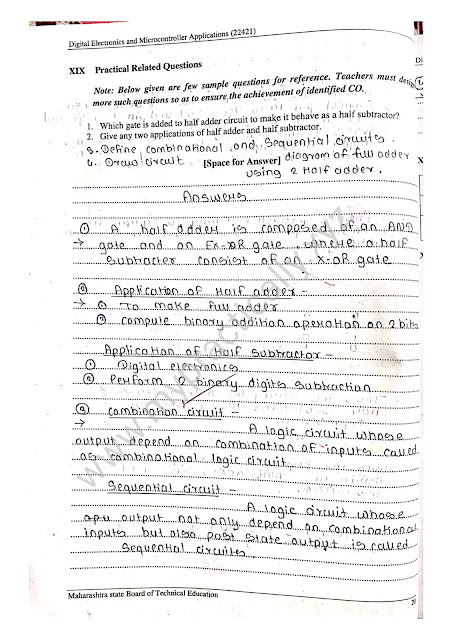 Digital Electronics and Microcontroller Applications (22421)
XIX Practical Related Questions
Note: Below given are few sample questions for reference. Teachers must design
more such questions so as to ensure the achievement of identified CO.
1. Which gate is added to half adder circuit to make it behave as a half subtractor?
2. Give any two applications of half adder and half subtractor.
3. Define combinational and sequential circuites.
4. Draw circuit [Space for Answer] diagram of full adder
using 2 Half adder.
Answers
① A half adder is composed of an AND
→ gate and an Ex-OR gate, where a half
subtracter consist of an X-OR gate
② Application of Half adder -
→ ① To make full adder
② compute binary addition operation on 2 bits
Application of Half Subtractor -
① Digital electronics
② Perform 2 binary digits subtraction
③ combination circuit -
→ A logic circuit whose
output depend on combination of inputs called
as combinational logic circuit.
Sequential circuit -
A logic circuit whose
output not only depend on combinational
inputs but also past state output is called
Sequential circuites.
Maharashtra state Board of Technical Education